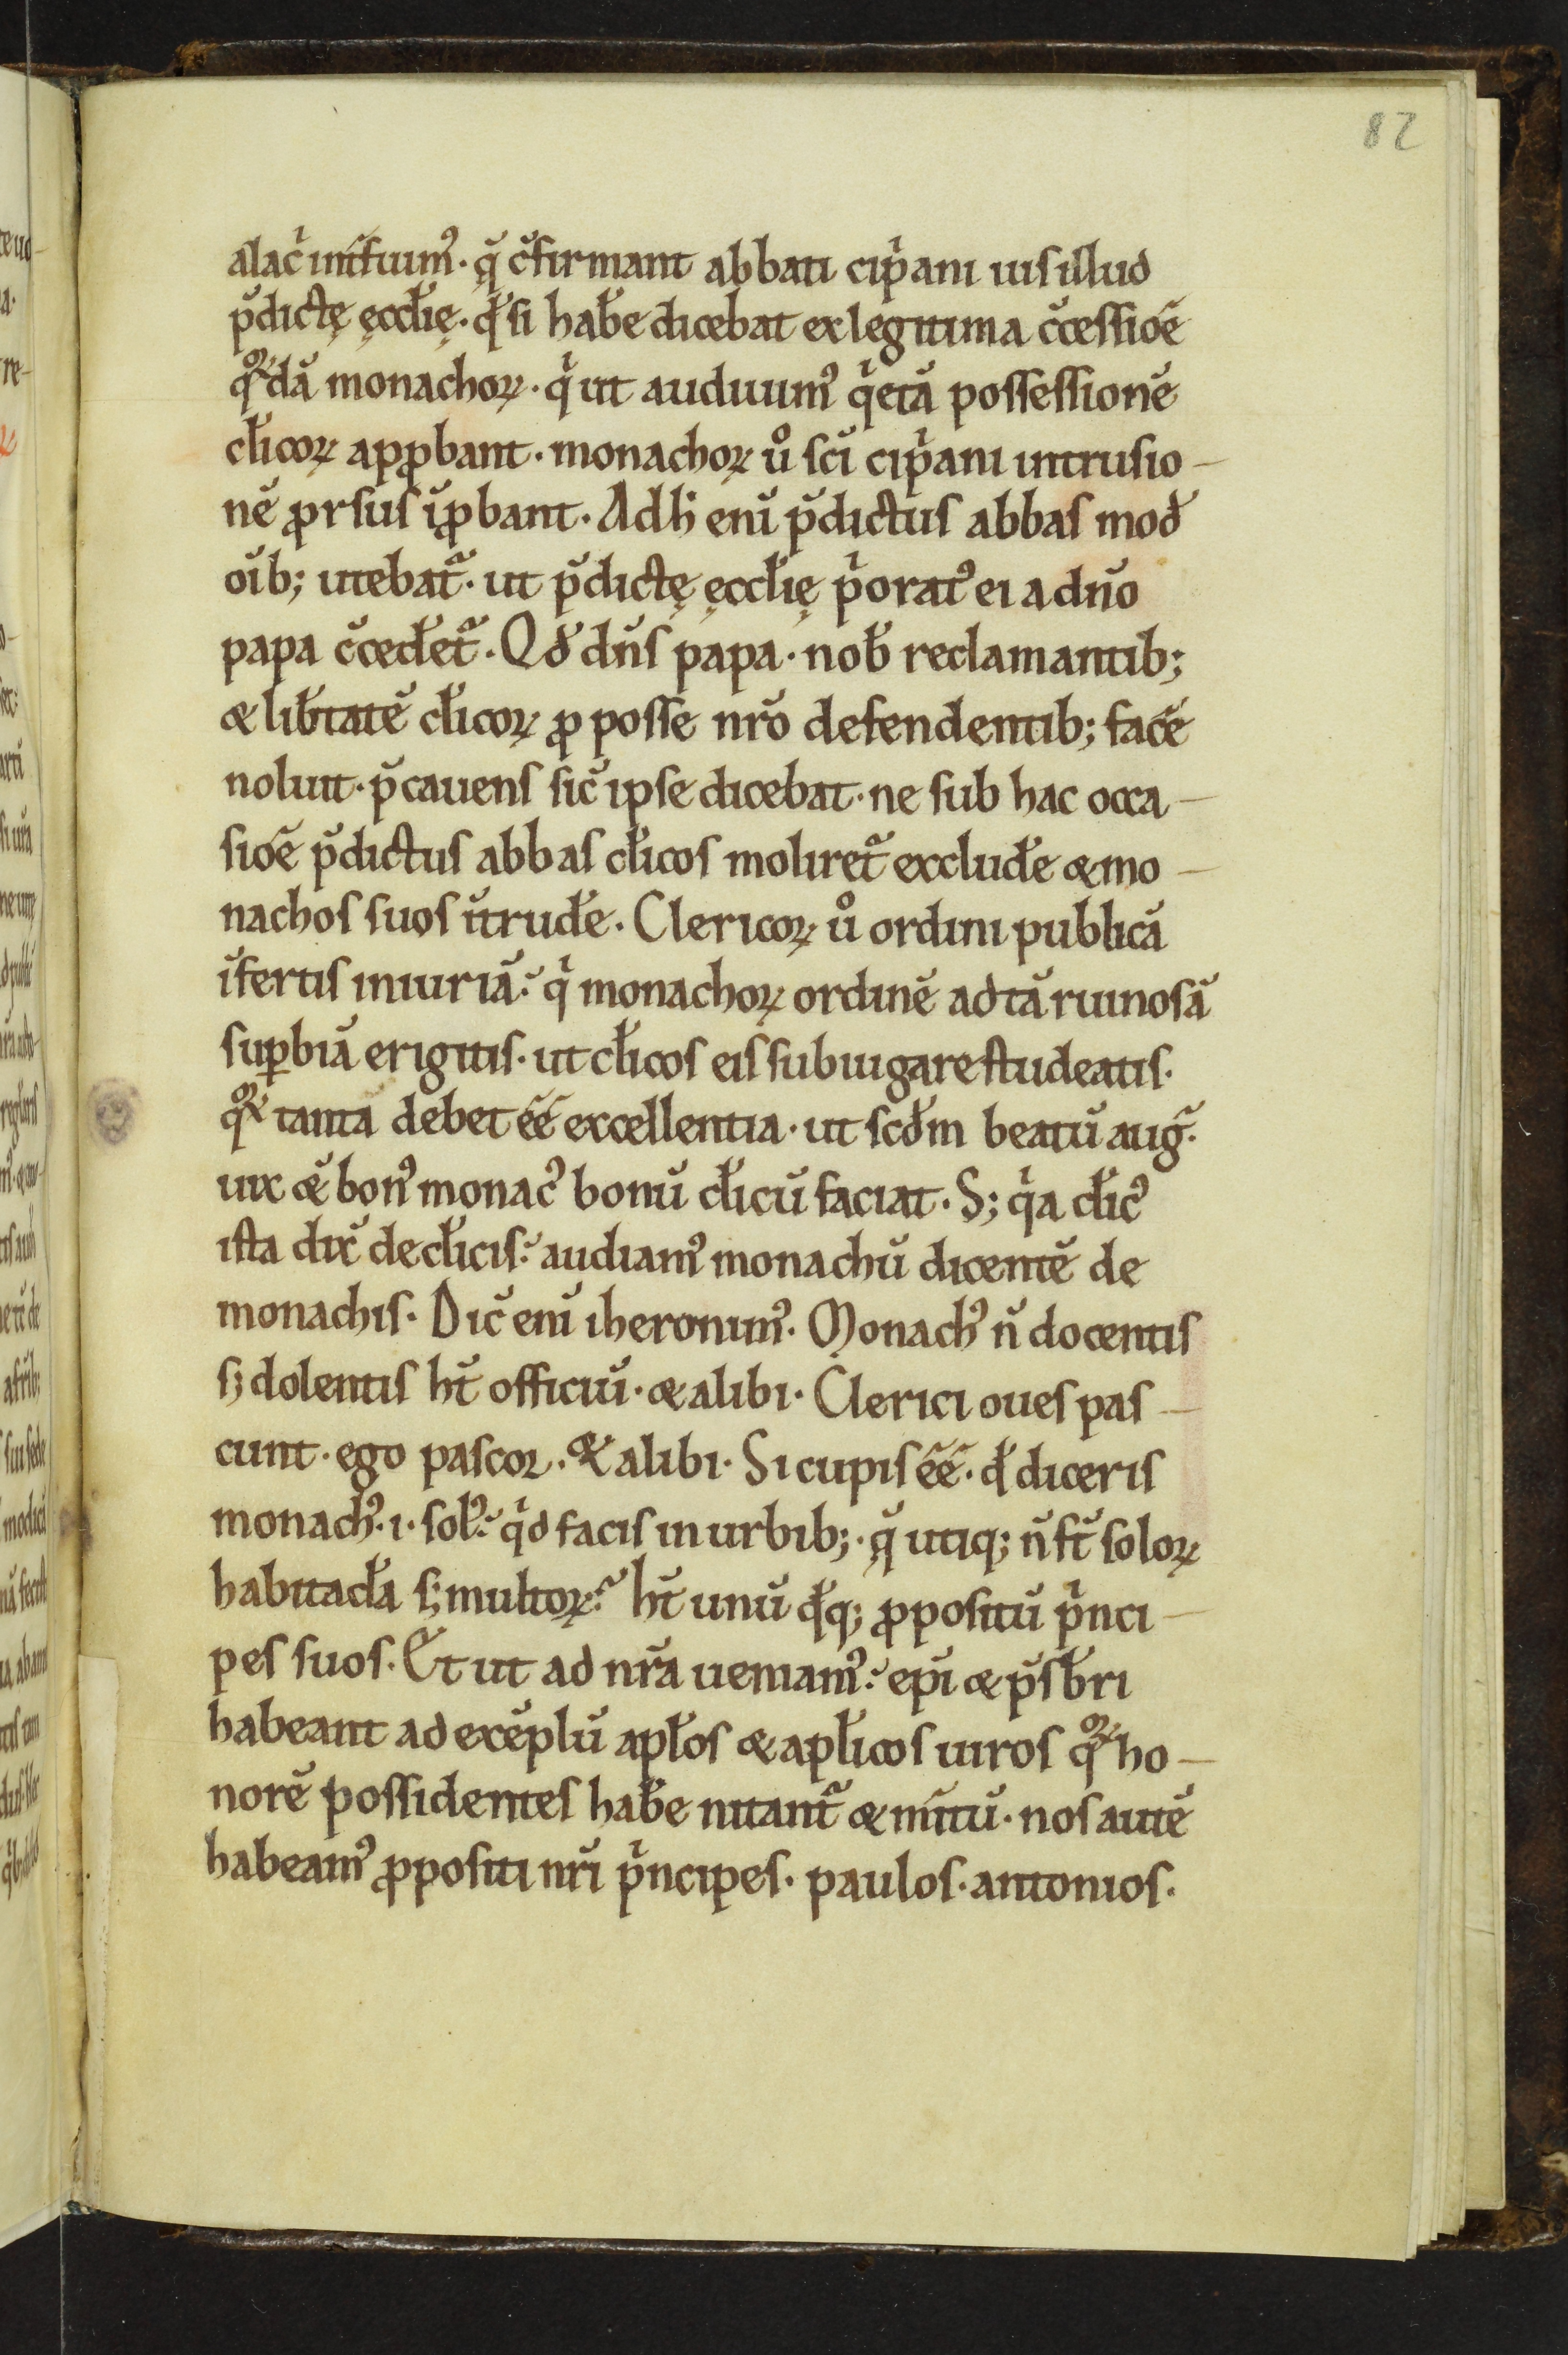 82
alac̉ int̃fuimꝰ · q̃ c̃firmant abbati cip̉ani ius illud
p̃dictę ęccłię · qđ si habe͛ dicebat ex legitima c̃cessiōe
qͦꝝdā monachoꝝ · qͥ ut audiuimꝰ qͥetā possessionē
cłicoꝝ apꝓbant · monachoꝝ ů sc̄i cipͥani intrusio-
nē ꝓrsus īꝓbant · Adh̄ enī p̃dictus abbas mod̃
oīb; utebat̃ · ut p̃dictę ęccłię pͥoratꝰ ei a dn̄o
papa c̃cedet̃ · Qđ dn̄s papa · nob̃ reclamantib;
& lib͛tatē cłicoꝝ ꝓ posse nr̄o defendentib; face͛
noluit · p̃cauens sic̃ ipse dicebat · ne sub hac occa-
siōe p̃dictus abbas cłicos moliret̃ exclude͛ & mo-
nachos suos ītrude͛ · Clericoꝝ ů ordini publicā
īfertis iniuriā · qͥ monachoꝝ ordinē ad tā ruinosā
suꝑbiā erigitis · ut cłicos eis subiugare studeatis ·
qͦꝝ tanta debet ēē excellentia · ut scđm beatū aug̃ ·
uix &̄ bonꝰ monacꝰ bonū cłicū faciat · S; qͥa cłicꝰ
ista dix̃ de cłicis · audiamꝰ monachū dicentē de
monachis · Dic̃ enī iheronimꝰ · Monachꝰ n̄ docentis
s; dolentis ht̄ officiū · & alibi · Clerici oues pas-
cunt · ego pascor · & alibi · Si cupis ēē · qđ diceris
monachꝰ · i · solꝰ · qͥd facis in urbib; · q̃ utiq; n̄ st̄ soloꝝ
habitacła s; multoꝝ · ht̄ unū qđq; ꝓpositū pͥnci-
pes suos · Et ut ad nr̄a ueniamꝰ · ep̄i & p̃sb̄ri
habeant ad exēplū apłos & apłicos uiros qͦꝝ ho-
norē possidentes habe͛ nitant̃ & m͛itū · nos autē
habeamꝰ ꝓpositi nr̄i pͥncipes · paulos · antonios ·